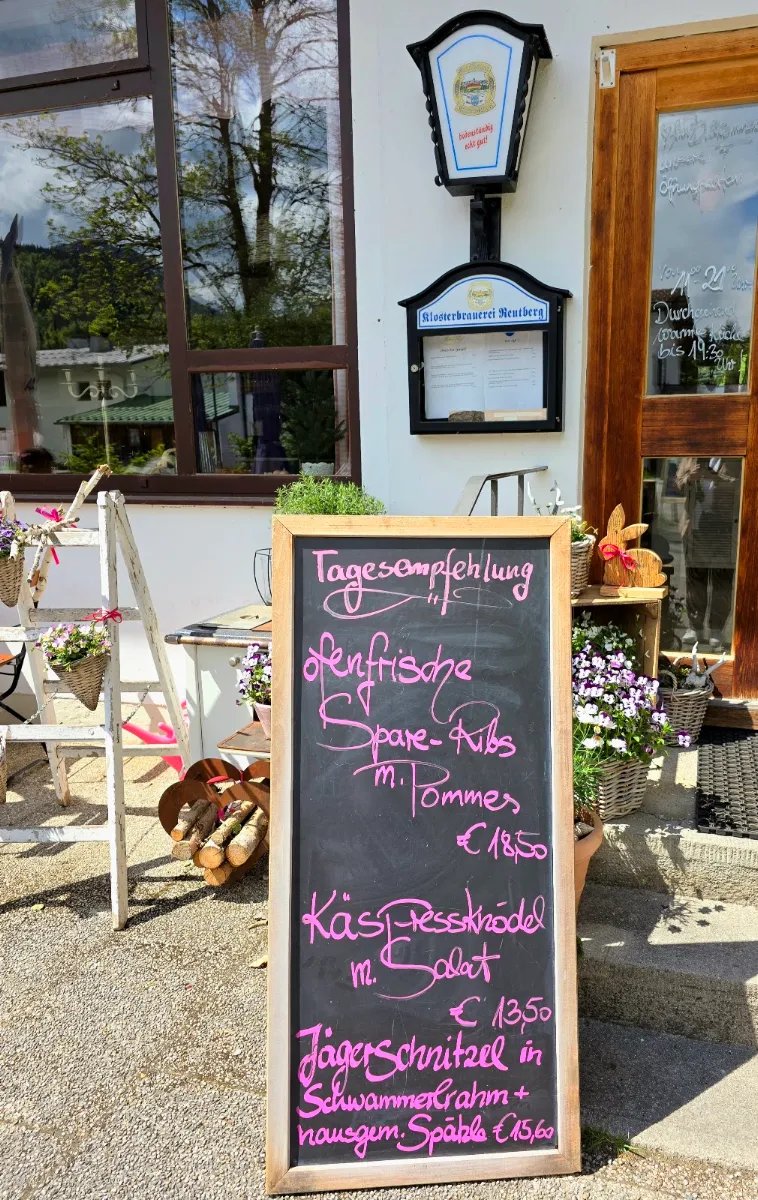 bodenständig
echt gut!
Klosterbrauerei Reutberg
Öffnungszeiten
11 - 21
bis 19:30
Uhr
Tagesempfehlung
ofenfrische
Spare-Ribs
m. Pommes
€ 18,50
Käspressknödel
m. Salat
€ 13,50
Jägerschnitzel in
Schwammerlrahm +
hausgem. Spätzle €15,60